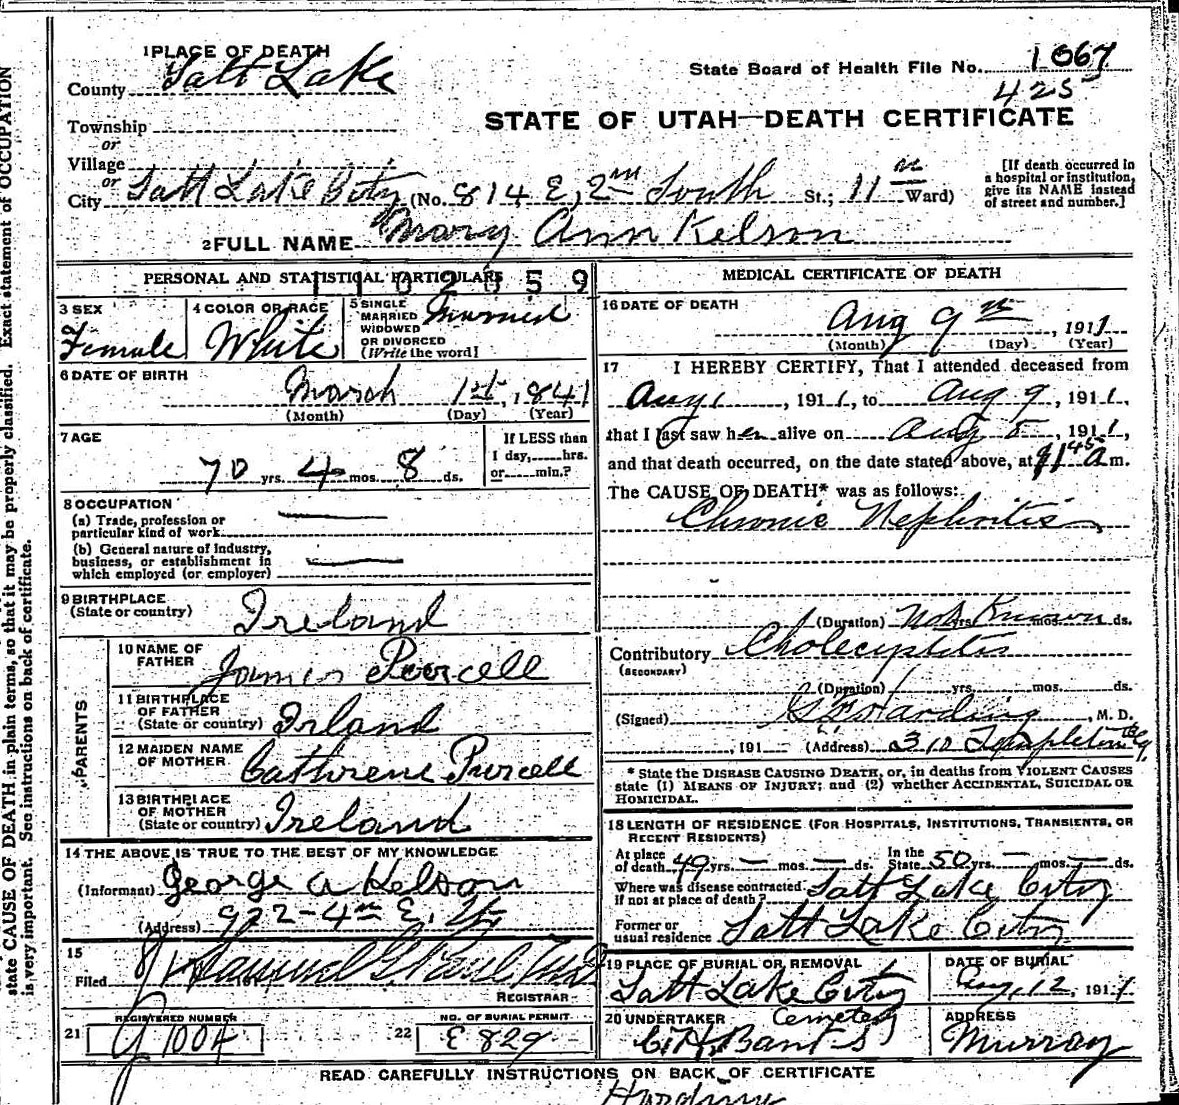 1 PLACE OF DEATH
County Salt Lake
State Board of Health File No. 1067
425
Township
or
Village
or
STATE OF UTAH—DEATH CERTIFICATE
City Salt Lake City (No. 814 E, 2nd South St.; 11th Ward)
[If death occurred in
a hospital or institution,
give its NAME instead
of street and number.]
2 FULL NAME Mary Ann Kelson
PERSONAL AND STATISTICAL PARTICULARS
1102059
3 SEX
Female
4 COLOR OR RACE
White
5 SINGLE
MARRIED
WIDOWED
OR DIVORCED
(Write the word]
Married
6 DATE OF BIRTH
March 1st, 1841
(Month) (Day) (Year)
7 AGE
70 yrs. 4 mos. 8 ds.
If LESS than
1 day, hrs.
or min.?
8 OCCUPATION
(a) Trade, profession or
particular kind of work
(b) General nature of industry,
business, or establishment in
which employed (or employer)
9 BIRTHPLACE
(State or country) Ireland
PARENTS
10 NAME OF
FATHER James Purcell
11 BIRTHPLACE
OF FATHER
(State or country) Irland
12 MAIDEN NAME
OF MOTHER Cathrene Purcell
13 BIRTHPLACE
OF MOTHER
(State or country) Ireland
14 THE ABOVE IS TRUE TO THE BEST OF MY KNOWLEDGE
(Informant) George A Kelson
(Address) 922-4th E.
15
Filed
REGISTRAR
REGISTERED NUMBER
21 1004
NO. OF BURIAL PERMIT
22 E 829
MEDICAL CERTIFICATE OF DEATH
16 DATE OF DEATH
Aug 9th, 1911
(Month) (Day) (Year)
17 I HEREBY CERTIFY, That I attended deceased from
Aug 1, 1911, to Aug 9, 1911,
that I last saw her alive on Aug 8, 1911,
and that death occurred, on the date stated above, at 9:45 a m.
The CAUSE OF DEATH* was as follows:
Chronic Nephritis
(Duration) Not Known yrs. mos. ds.
Contributory Cholecystitis
(SECONDARY)
(Duration) yrs. mos. ds.
(Signed) Harding, M. D.
, 191 (Address) 310 Templeton Bg.
* State the DISEASE CAUSING DEATH, or, in deaths from VIOLENT CAUSES
state (1) MEANS OF INJURY; and (2) whether ACCIDENTAL, SUICIDAL OR
HOMICIDAL.
18 LENGTH OF RESIDENCE (FOR HOSPITALS, INSTITUTIONS, TRANSIENTS, OR
RECENT RESIDENTS)
At place
of death 49 yrs. — mos. — ds. In the
State 50 yrs. — mos. — ds.
Where was disease contracted
If not at place of death? Salt Lake City
Former or
usual residence Salt Lake City
19 PLACE OF BURIAL OR REMOVAL
Salt Lake City
Cemetery
DATE OF BURIAL
Aug, 12, 1911
20 UNDERTAKER
ADDRESS
Murray
READ CAREFULLY INSTRUCTIONS ON BACK OF CERTIFICATE
Harding
state CAUSE OF DEATH in plain terms, so that it may be properly classified. Exact statement of OCCUPATION
is very important. See instructions on back of certificate.